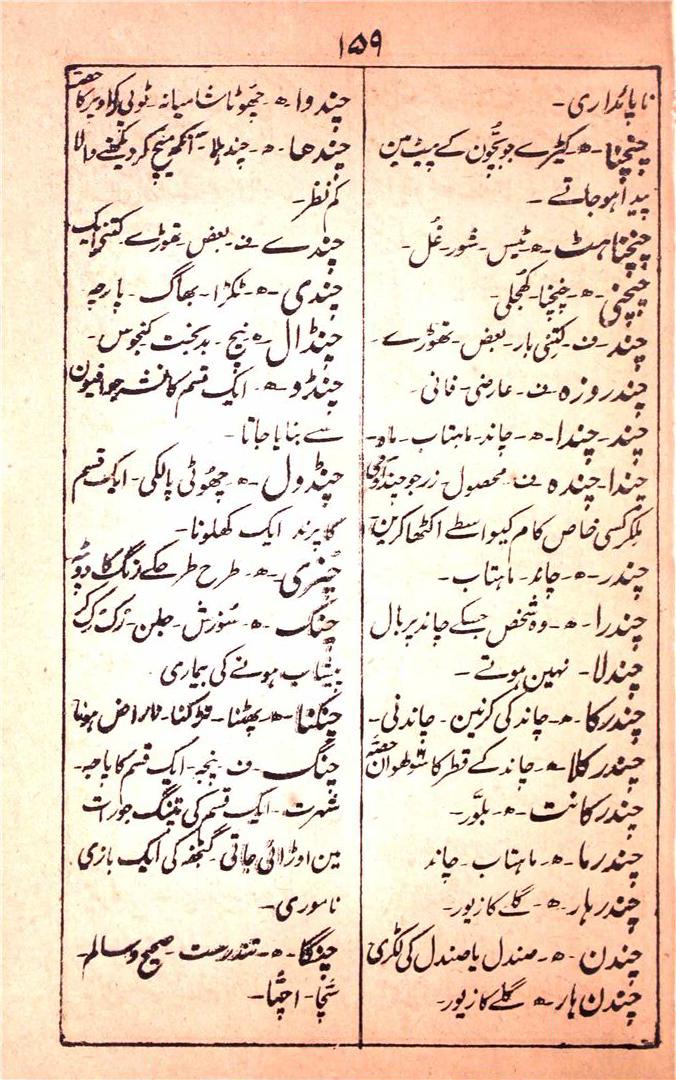 ۱۵۹
ناپائداری۔
چنچنا۔ ھ۔ کیڑے جو بچّون کے پیٹ مین
پیدا ہو جاتے ۔
چنچناہٹ۔ ھ ٹیس۔ شور۔ غُل۔
چنچنی۔ ھ۔ چنچنا۔ کھُجلی
چند۔ ف۔ کتنی بار۔ بعض۔ تھوڑے۔
چند روزہ ف۔ عارضی۔ فانی۔
چند۔ چندا۔ ھ۔ چاند۔ ماہتاب۔ ماہ۔
چندا۔ چندہ ف۔ محصول۔ زر جو چند آدمی
ملکر کسی خاص کام کیواسطے اکٹھا کرین
چندر۔ ھ۔ چاند۔ ماہتاب۔
چندرا۔ ھ۔ وہ شخص جسکے چاند پر بال
چندلا۔ نہین ہوتے ۔
چندرکا۔ ھ۔ چاند کی کرنین۔ چاندنی۔
چندر کلا ھ۔ چاند کے قطر کا سولھوان حصّہ
چندر کانت۔ ھ۔ بلّور۔
چندرما۔ ھ۔ ماہتاب۔ چاند
چندر ہار۔ ھ۔ گلے کا زیور۔
چندن۔ ھ۔ صندل یا صندل کی لکڑی
چندن ہار۔ ھ گلے کا زیور۔
چندوا۔ ھ۔ چھوٹا شامیانہ۔ ٹوپی کا اوپر کا حصّہ
چندھا۔ ھ۔ چندہلا۔ آنکھ میچ کر دیکھنے والا
کم نظر۔
چندے ف۔ بعض۔ تھوڑے۔ کتنی ایک
چندی۔ ھ۔ ٹکڑا۔ بھاگ۔ پارچہ
چنڈال۔ ھ نیچ۔ بدبخت کنجوس۔
چنڈو۔ ھ۔ ایک قسم کا نشہ جو افیون
سے بنایا جاتا۔
چنڈول۔ ھ۔ چھوٹی پالکی۔ ایک قسم
کا پرند ایک کھلونا۔
چُنری۔ ھ۔ طرح طرحکے رنگ کا دوپٹّہ
چنگ۔ ھ۔ سُوزش۔ جلن۔ رُک رُک کر
پیشاب ہونے کی بیماری
چنکنا۔ ھ۔ پھٹنا۔ تڑکنا۔ ناراض ہونا
چنگ۔ ف۔ پنجہ۔ ایک قسم کا باجہ۔
شہرت۔ ایک قسم کی پتنگ جو رات
مین اوڑائی جاتی۔ گنجفہ کی ایک بازی
ناموری۔
چنگا۔ ھ۔ تندرست۔ صحیح و سالم۔
سچّا۔ اچھّا۔